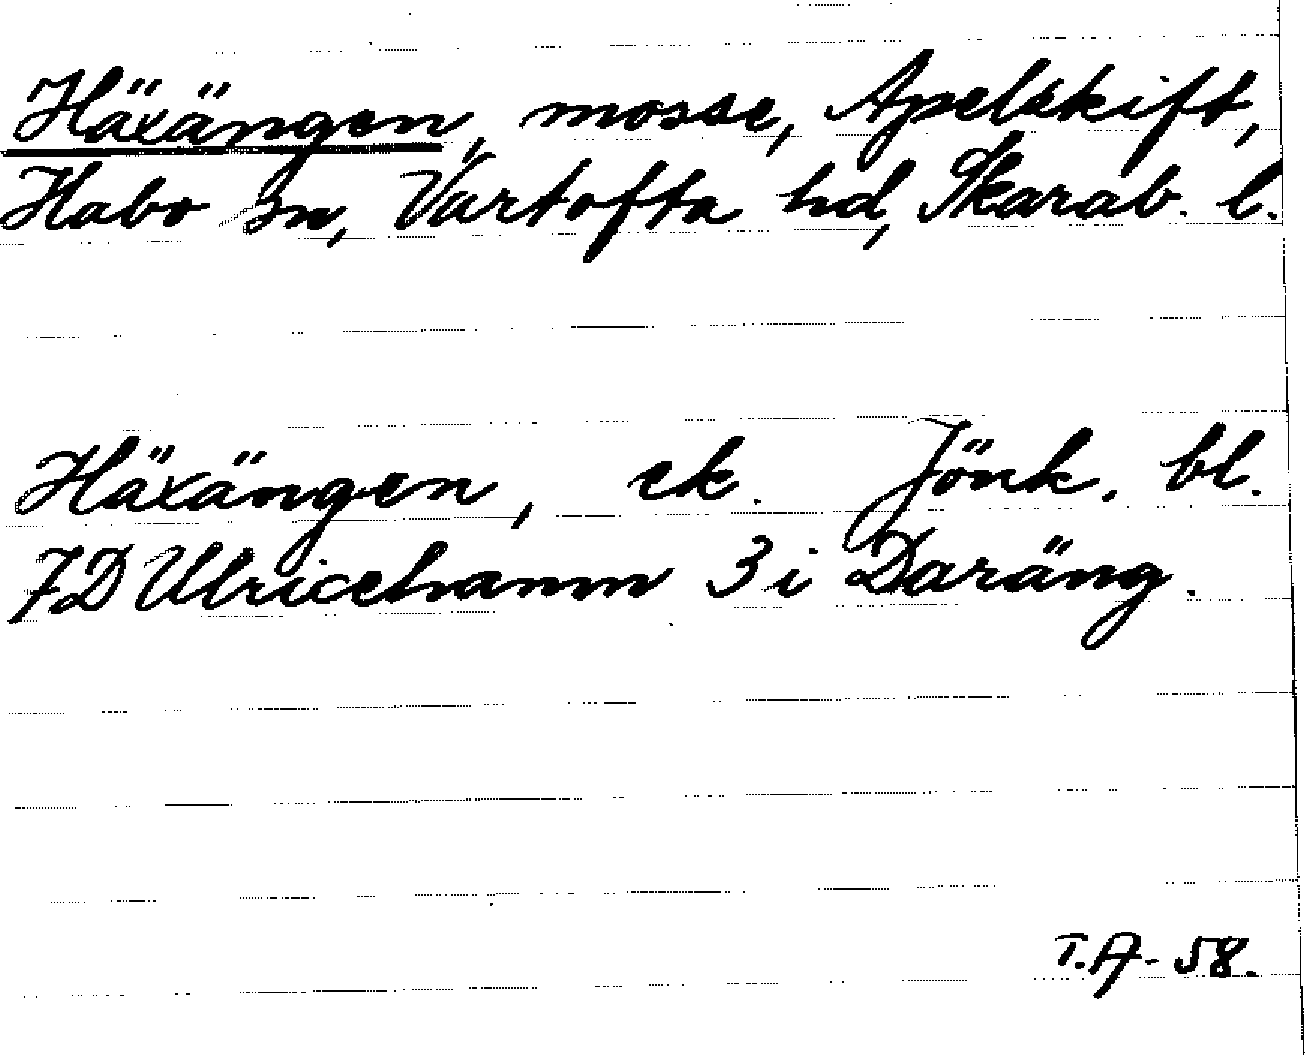 Häxängen, mosse, Apelskift,
Habo sn, Vartofta hd, Skarab. l.
Häxängen, ek. Jönk. bl.
7D Ulricehamn 3 i Daräng.
T.A-58.